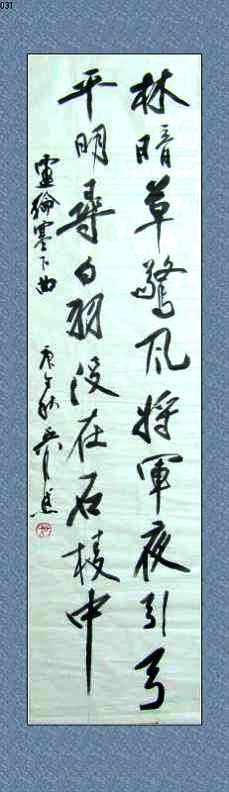 031
林暗草驚风将軍夜引弓
平明尋白羽没在石棱中
盧綸塞下曲
庚午秋